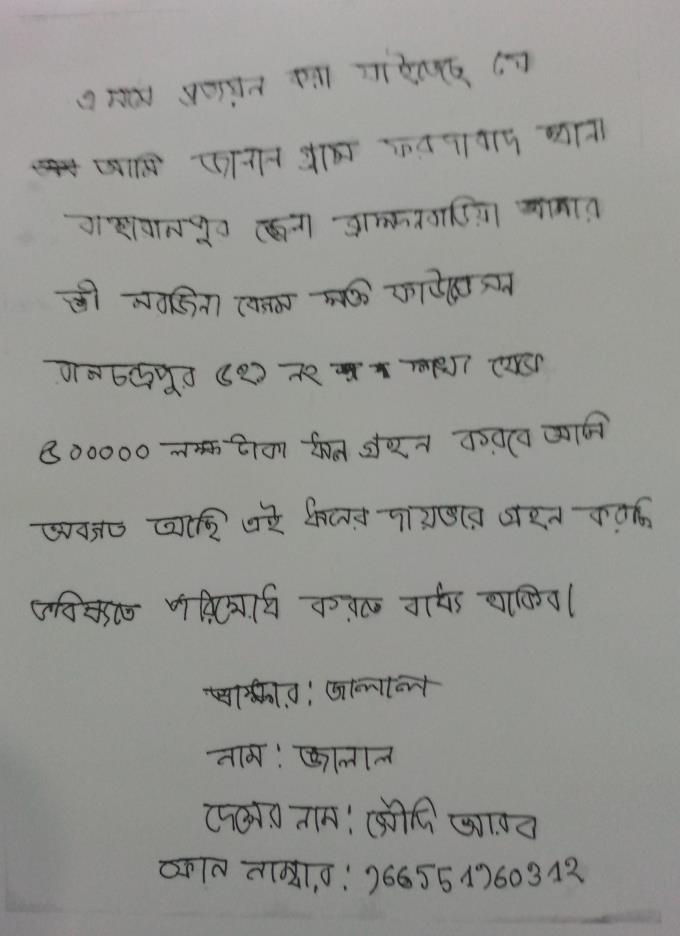 এ মর্মে প্রত্যয়ন করা যাইতেছে যে
আমি জালাল গ্রাম ফরদাবাদ থানা
বাঞ্ছারামপুর জেলা ব্রাহ্মনবাড়িয়া আমার
স্ত্রী নারজিনা বেগম শক্তি ফাউন্ডেশন
রামচন্দ্রপুর নং শাখা থেকে
৫০০০০০ লক্ষ টাকা ঋন গ্রহন করবে আমি
অবগত আছি এই ঋনের দায়ভার গ্রহন করছি
ভবিষ্যতে পরিশোধ করতে বাধ্য থাকিব।
স্বাক্ষর: জালাল
নাম: জালাল
দেশের নাম: সৌদি আরব
ফোন নাম্বার: 966551960312